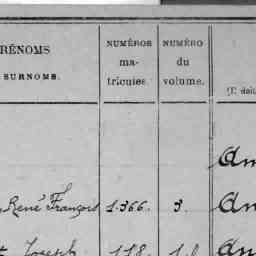 RÉNOMS
SURNOMS.
NUMÉROS
ma-
tricules.
NUMÉRO
du
volume.
(L' doit
Am
René François 1.366. 3. An
Joseph 118. An